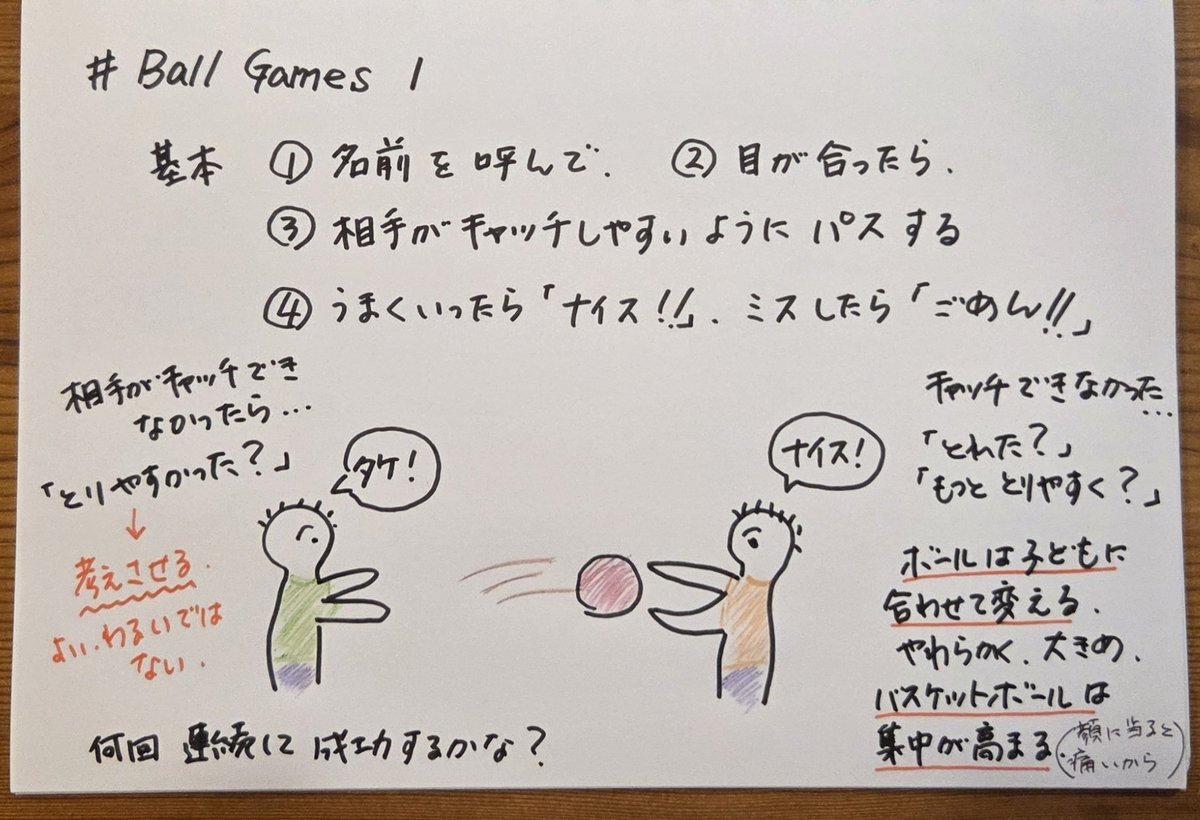 # Ball Games 1
基本 ① 名前を呼んで. ② 目が合ったら.
③ 相手がキャッチしやすいように パスする
④ うまくいったら「ナイス!!」. ミスしたら「ごめん!!」
相手がキャッチでき
なかったら…
「とりやすかった?」
↓
考えさせる.
よい.わるいでは
ない.
タケ!
ナイス!
キャッチできなかった…
「とれた?」
「もっと とりやすく?」
ボールは子どもに
合わせて変える.
やわらかく.大きめ.
バスケットボールは
集中が高まる.
(顔に当ると
痛いから)
何回 連続して 成功するかな?